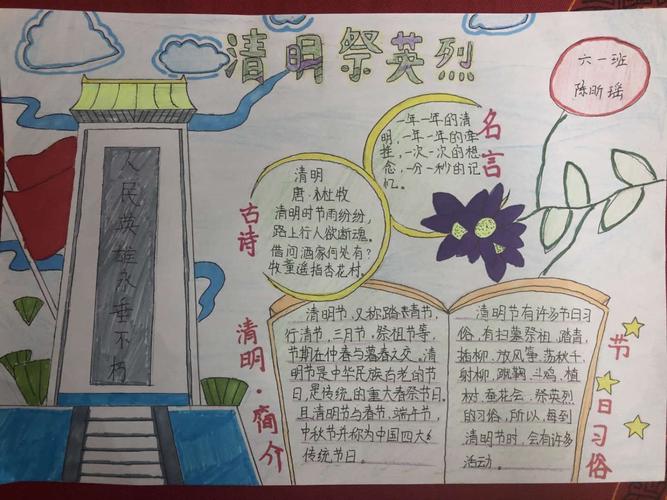 清明祭英烈
六一班
陈昕瑶
人民英雄永垂不朽
名言
一年一年的清
明,一年一年的牵
挂,一次一次的想
念,一分一秒的记
忆。
古诗
清明
唐·杜牧
清明时节雨纷纷,
路上行人欲断魂。
借问酒家何处有?
牧童遥指杏花村。
清明·简介
清明节,又称踏青节,
行清节,三月节,祭祖节等,
节期在仲春与暮春之交,清
明节是中华民族古老的节
日,是传统的重大春祭节日。
且清明节与春节,端午节,
中秋节并称为中国四大
传统节日。
节日习俗
清明节有许多节日习
俗,有扫墓祭祖,踏青,
插柳,放风筝,荡秋千,
射柳,蹴鞠,斗鸡,植
树,蚕花会,祭英烈
的习俗,所以,每到
清明节时,会有许多
活动。